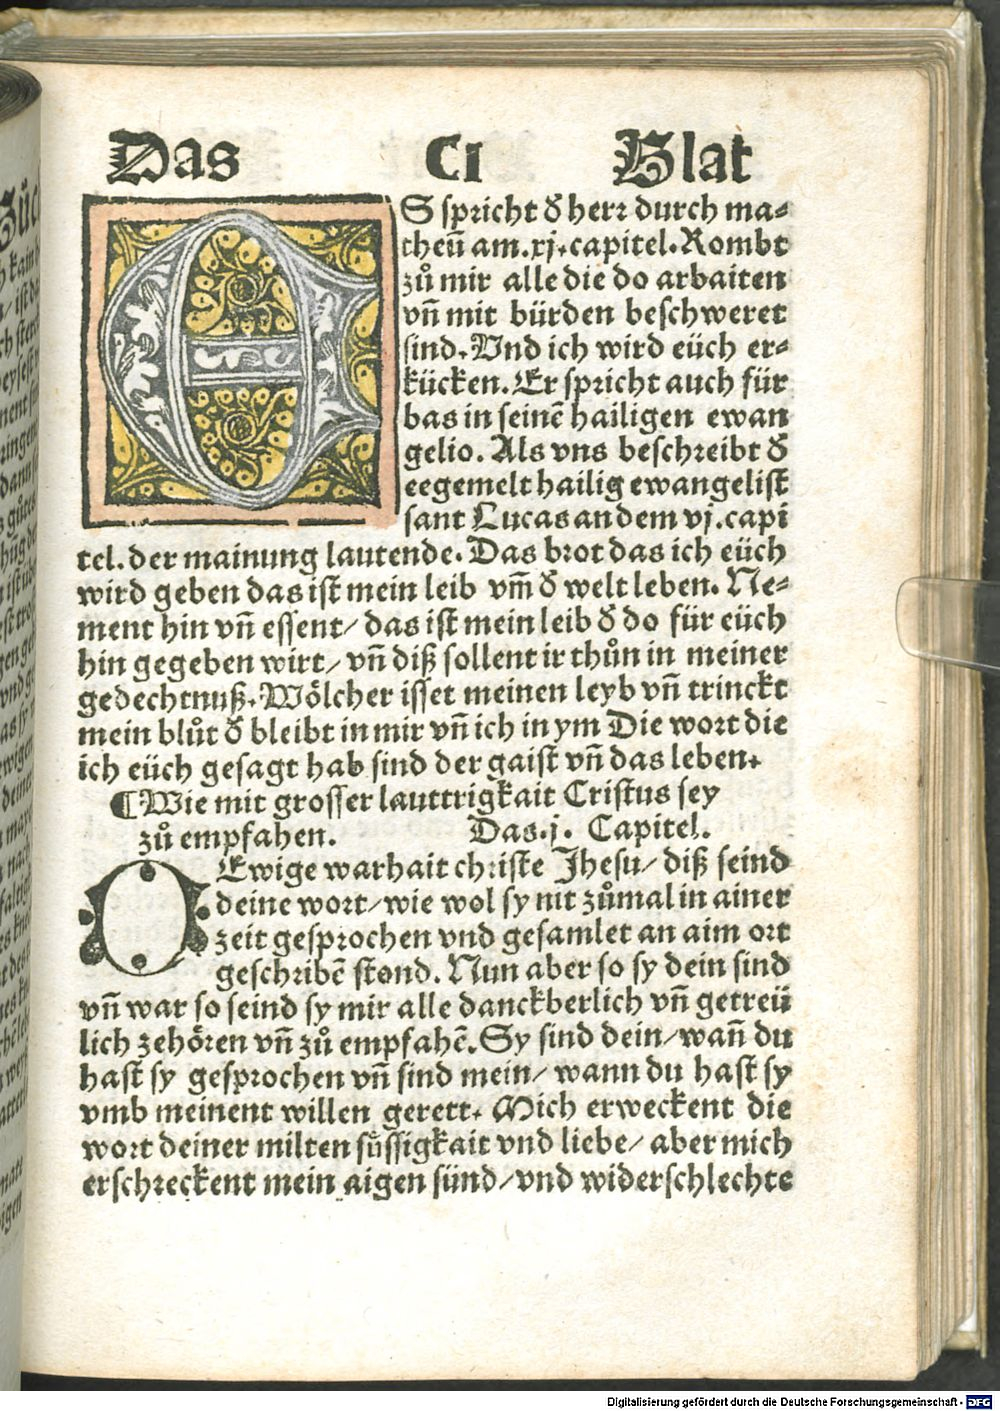 Das CI Blat
ES spricht d̕ herr durch ma⸗
theuͤ am.xj.capitel.Kombt
zů mir alle die do arbaiten
vñ mit bürden beschweret
sind.Vnd ich wird eüch er⸗
kücken.Er spricht auch für
bas in seinē hailigen ewan
gelio. Als vns beschreibt d̕
eegemelt hailig ewangelist
sant Lucas an dem vj.capi
tel. der mainung lautende. Das brot das ich eüch
wird geben das ist mein leib vm̄ d̕ welt leben. Ne⸗
ment hin vñ essent/ das ist mein leib d̕ do für eüch
hin gegeben wirt/ vñ diß sollent ir thůn in meiner
gedechtnuß.Woͤlcher isset meinen leyb vñ trinckt
mein blůt d̕ bleibt in mir vñ ich in ym Die wort die
ich eüch gesagt hab sind der gaist vñ das leben.
¶Wie mit grosser lauttrigkait Cristus sey
zů empfahen. Das.j. Capitel.
O Ewige warhait christe Jhesu/ diß seind
deine wort/wie wol sy nit zůmal in ainer
zeit gesprochen vnd gesamlet an aim ort
geschribē stond. Nun aber so sy dein sind
vñ war so seind sy mir alle danckberlich vñ getreü
lich zehoͤren vñ zů empfahē.Sy sind dein/wañ du
hast sy gesprochen vñ sind mein/ wann du hast sy
vmb meinent willen gerett. Mich erweckent die
wort deiner milten süssigkait vnd liebe/ aber mich
erschreckent mein aigen sünd/vnd widerschlechte
Digitalisierung gefördert durch die Deutsche Forschungsgemeinschaft - DFG